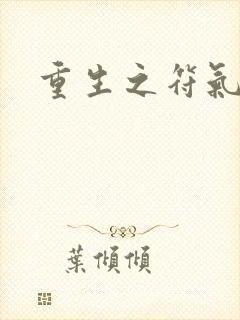 重生之符氣
葉傾傾